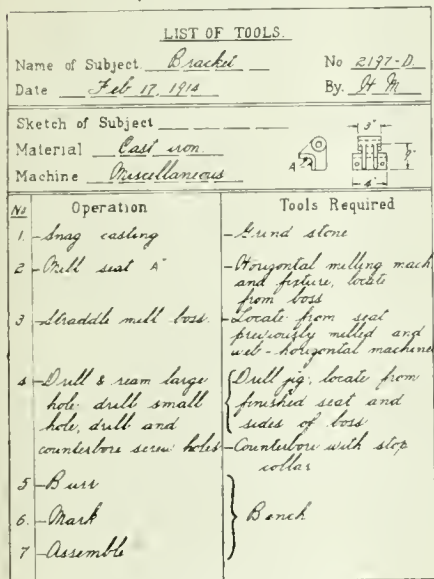 LIST OF TOOLS.
Name of Subject Bracket No 2197-D.
Date Feb 17, 1914 By. H M
Sketch of Subject
Material Cast iron.
Machine Miscellaneous
A 3" 4"
No Operation Tools Required
1. Snag casting - Grind stone
2 - Mill seat "A" - Horizontal milling mach
and fixture, locate
from boss
3 - Straddle mill boss. - Locate from seat
previously milled and
web - horizontal machine
4 - Drill & ream large Drill jig, locate from
hole. drill small finished seat and
hole, drill and sides of boss
counterbore screw holes - Counterbore with stop
collar
5 - Burr
6. - Mark Bench
7 - Assemble